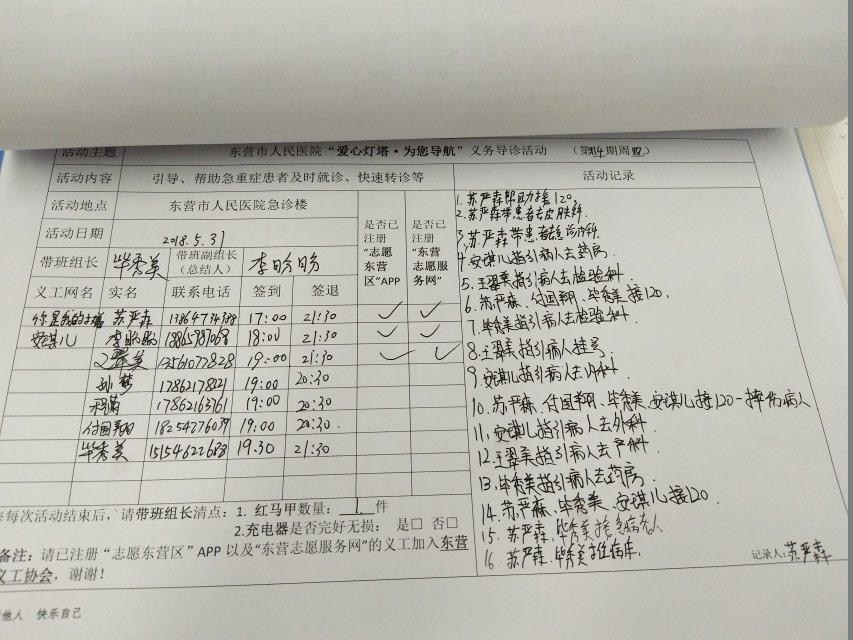 活动主题 东营市人民医院“爱心灯塔·为您导航”义务导诊活动 （第114期周四）
活动内容 引导、帮助急重症患者及时就诊、快速转诊等 活动记录
活动地点 东营市人民医院急诊楼 是否已注册“志愿东营区”APP 是否已注册“东营志愿服务网”
活动日期 2018.5.31
带班组长 毕秀美 带班副组长（总结人） 李盼盼
义工网名 实名 联系电话 签到 签退
苏严森 17:00 21:30 ✓ ✓
安琪儿 李盼盼 18865787068 18:00 21:30 ✓ ✓
王翠美 13561077828 19:00 21:30 ✓ ✓
刘梦 17862178021 19:00 20:30
17862163761 19:00 20:30
付国翔 18254776039 19:00 20:30
毕秀美 15154622688 19:30 21:30
1. 苏严森帮助接120.
2. 苏严森带患者去皮肤科.
3. 苏严森带患者去急诊内科.
4. 安琪儿指引病人去药房.
5. 王翠美指引病人去检验科.
6. 苏严森、付国翔、毕秀美接120.
7. 毕秀美指引病人去检验科.
8. 王翠美指引病人挂号.
9. 安琪儿指引病人去外科.
10. 苏严森、付国翔、毕秀美、安琪儿接120一摔伤病人
11. 安琪儿指引病人去外科.
12. 王翠美指引病人去产科.
13. 毕秀美指引病人去药房.
14. 苏严森、毕秀美、安琪儿接120.
15. 苏严森、毕秀美
16. 苏严森、毕秀美推病床.
记录人：苏严森
每次活动结束后，请带班组长清点：1. 红马甲数量：1 件
2.充电器是否完好无损： 是□ 否□
备注：请已注册“志愿东营区”APP以及“东营志愿服务网”的义工加入东营
义工协会，谢谢！
他人 快乐自己